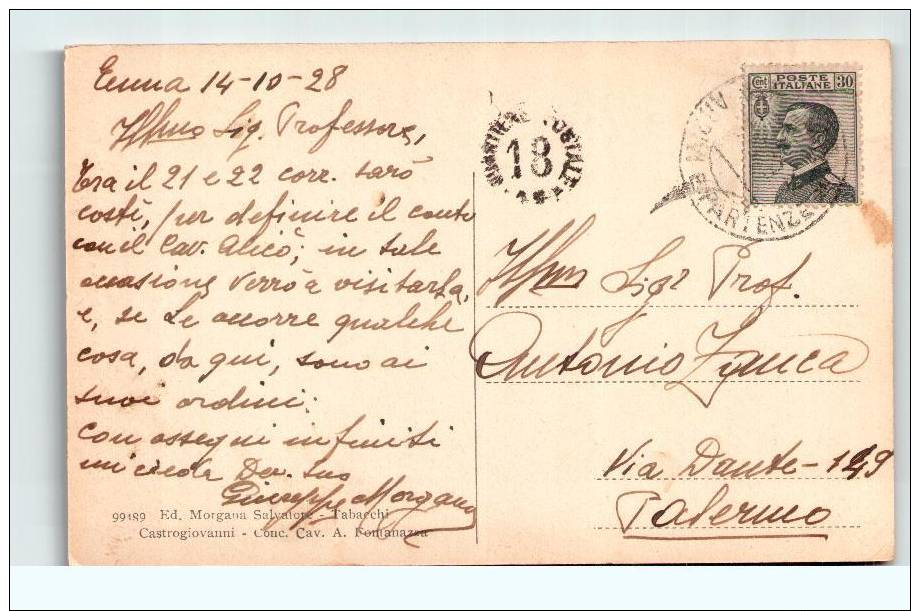 Enna 14-10-28
Illmo Sig. Professore,
Tra il 21 e 22 corr. sarò
costì, per definire il conto
con il Cav. Alicò; in tale
occasione verrò a visitarla,
e, se Le occorre qualche
cosa, da qui, sono ai
suoi ordini.
Con ossequi infiniti
mi creda Dev. suo
Giuseppe Morgana
99189 Ed. Morgana Salvatore - Tabacchi
Castrogiovanni - Conc. Cav. A. Fontanazza
POSTALE
18
PARTENZE
Cent POSTE ITALIANE 30
Illmo Sigr Prof.
Antonio Zanca
Via Dante - 149
Palermo